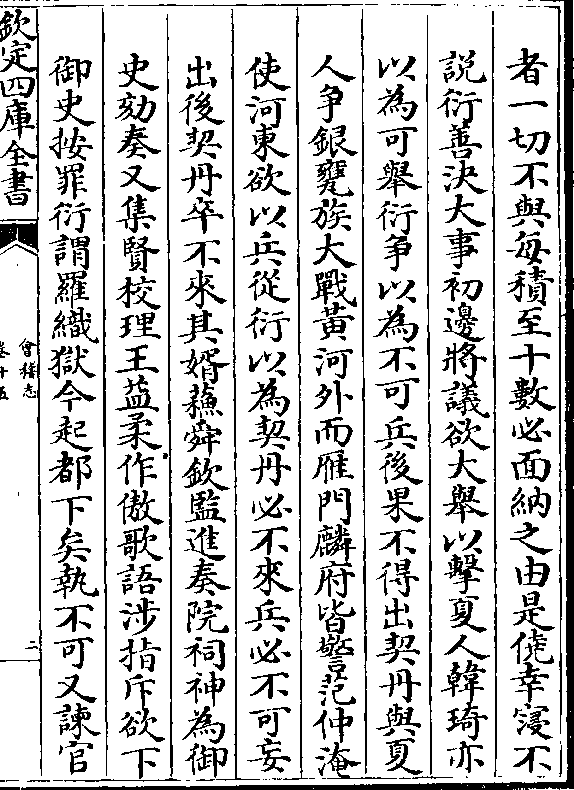 者一切不與每積至十數必面納之由是僥幸寖不
說衍善決大事初邊將議欲大舉以擊夏人韓琦亦
以為可舉衍爭以為不可兵後果不得出契丹與夏
人爭銀甕族大戰黃河外而雁門麟府皆警范仲淹
使河東欲以兵從衍以為契丹必不來兵必不可妄
出後契丹卒不來其婿蘓舜欽監進奏院祠神為御
史劾奏又集賢校理王益柔作傲歌語涉指斥欲下
御史按罪衍謂羅織獄今起都下矣執不可又諫官
欽定四庫全書
會稽志
卷十五
二